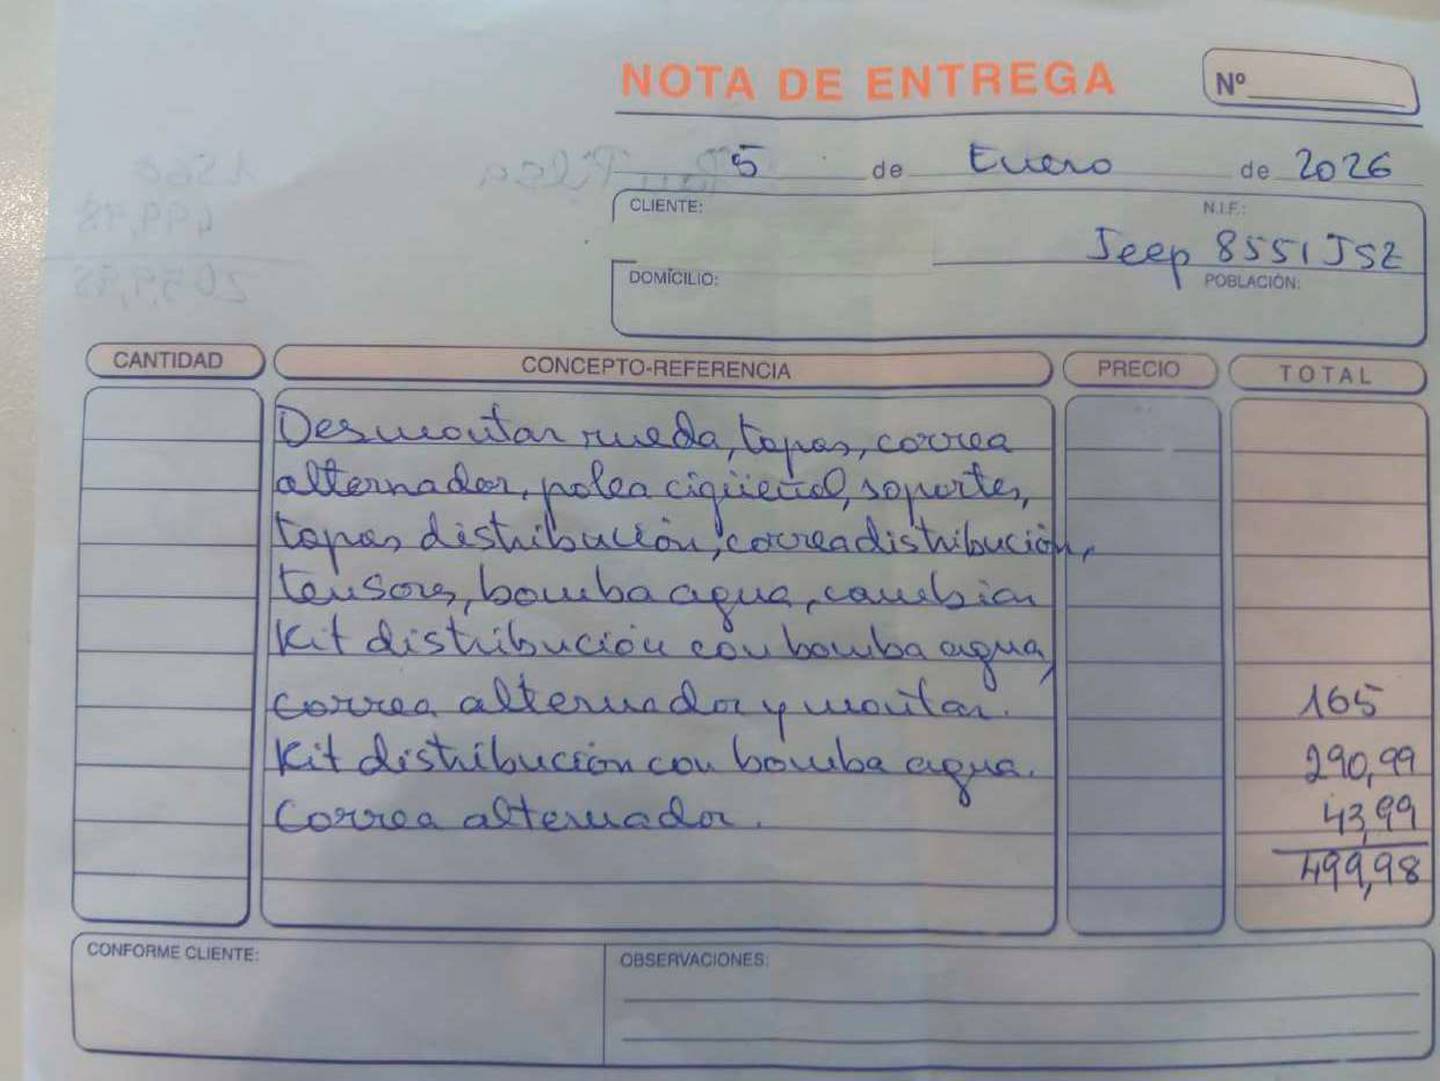 NOTA DE ENTREGA
Nº
5 de Enero de 2026
CLIENTE: N.I.F.:
Jeep 8551JSZ
DOMICILIO: POBLACIÓN:
CANTIDAD CONCEPTO-REFERENCIA PRECIO TOTAL
Desmontar rueda, tapas, correa
alternador, polea cigüeñal, soportes,
tapas distribución, correa distribución,
tensores, bomba agua, cambiar
Kit distribución con bomba agua,
correa alternador y montar. 165
Kit distribución con bomba agua. 290,99
Correa alternador. 43,99
499,98
CONFORME CLIENTE: OBSERVACIONES: